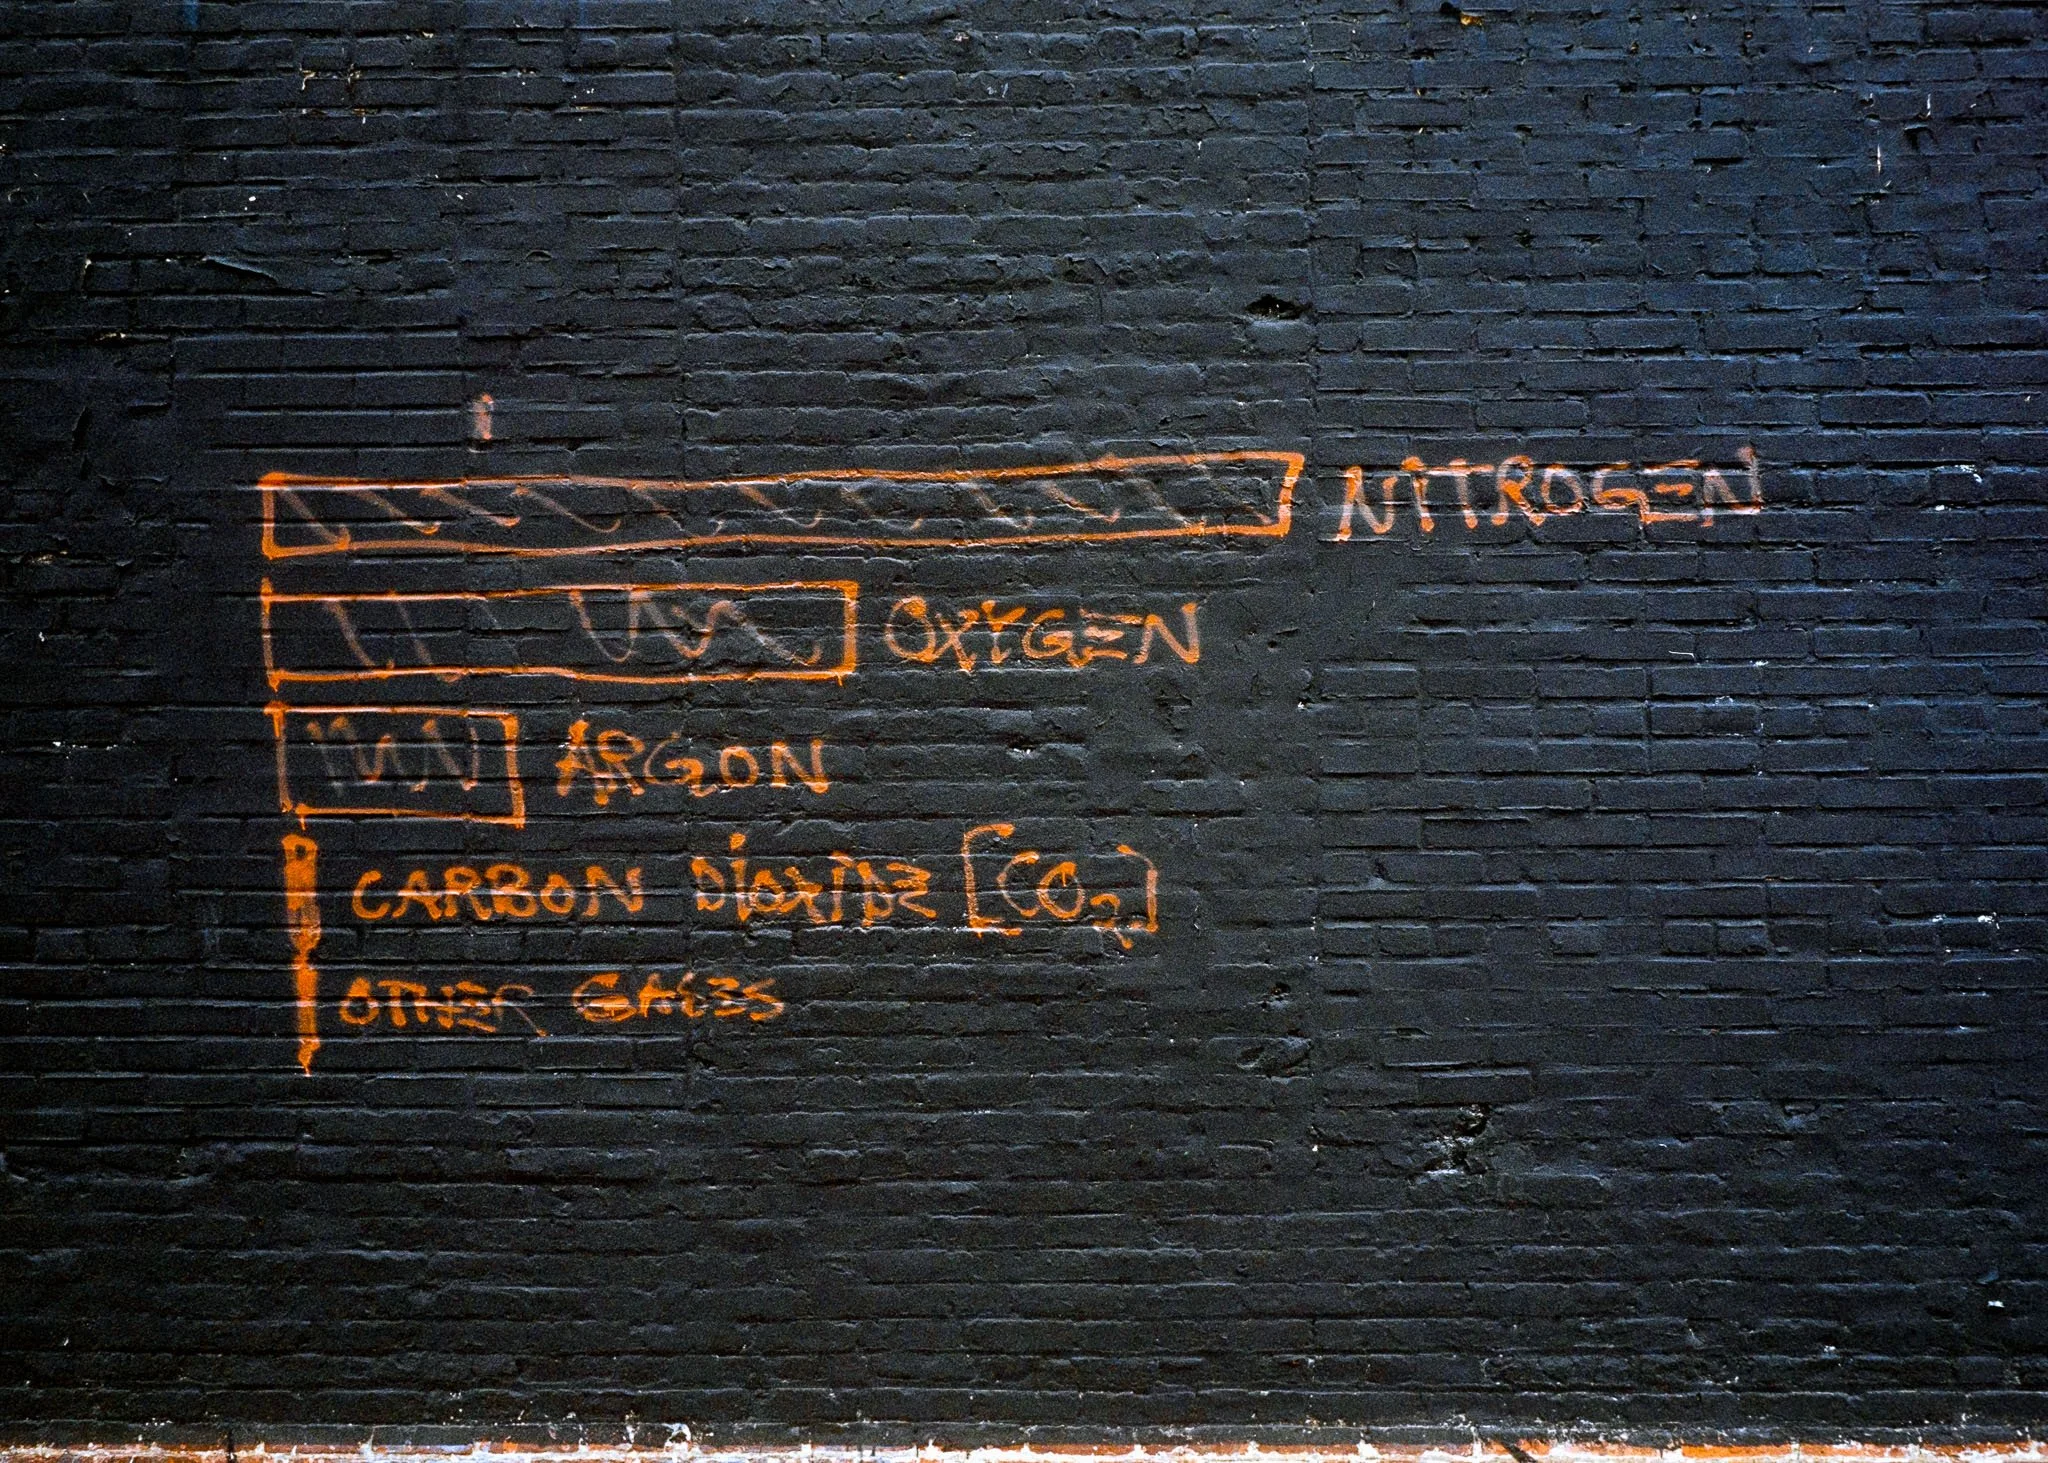 NITROGEN
OXYGEN
ARGON
CARBON DIOXIDE [CO₂]
OTHER GASES